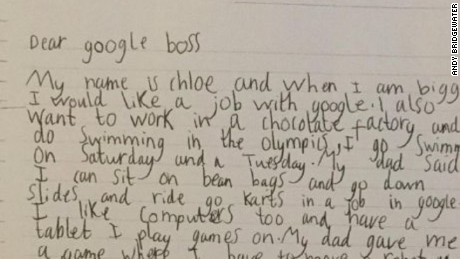 Dear google boss
My name is chloe and when I am bigg
I would like a job with google. I also
want to work in a chocolate factory and
do swimming in the olympics. I go Swimm
on Saturday and a Tuesday. My dad said
I can sit on bean bags and go down
slides and ride go karts in a job in google
I like computers too and have a
tablet I play games on. My dad gave me
a game where I have to move a robot
ANDY BRIDGEWATER